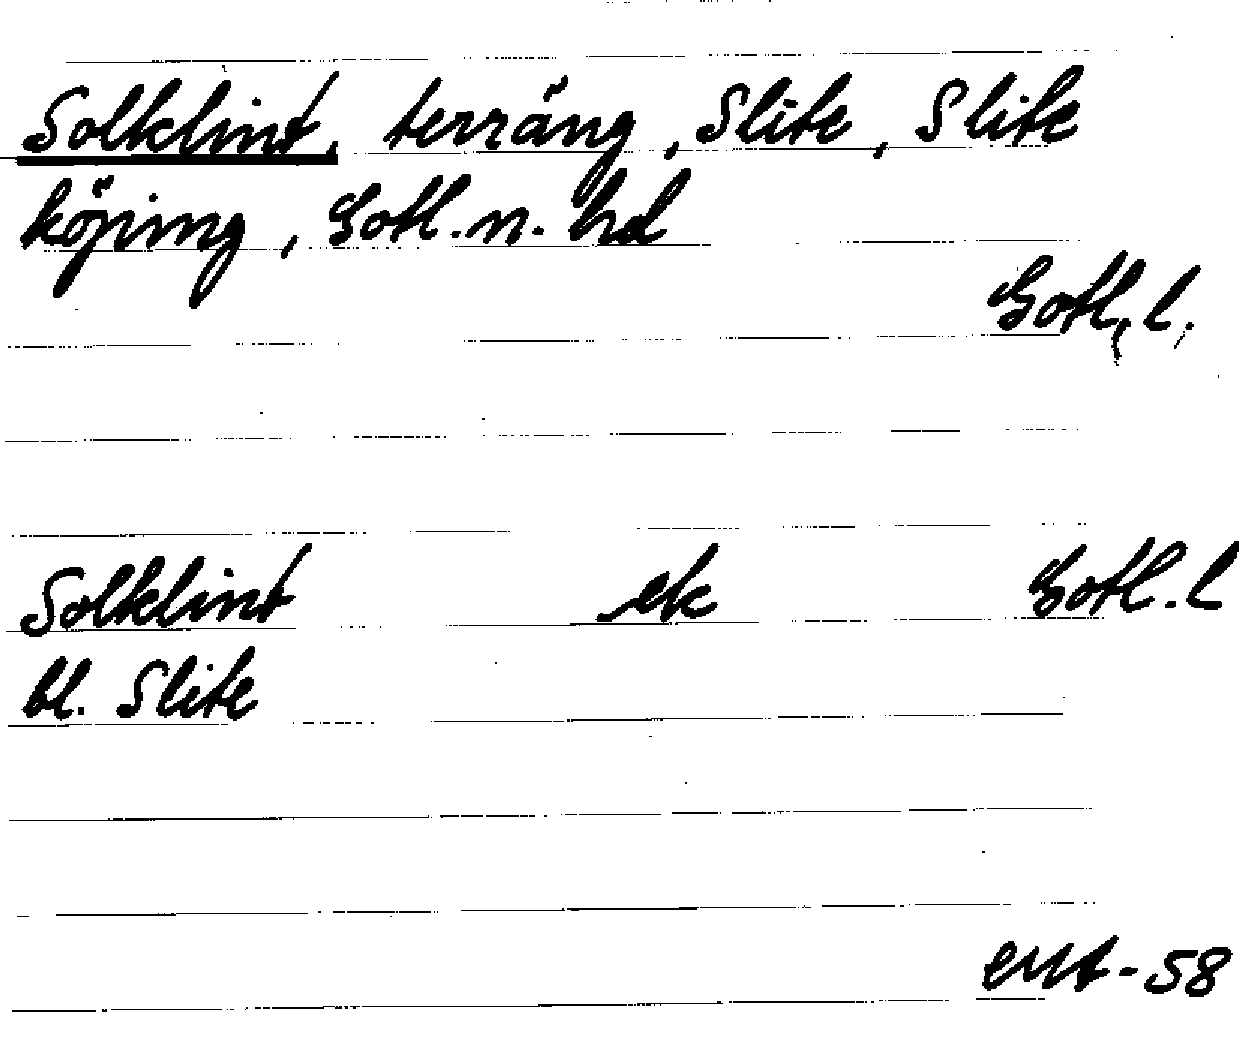 Solklint, terräng, Slite, Slite
köping, Gotl. n. hd
Gotl. l.
Solklint ek Gotl. l
bl. Slite